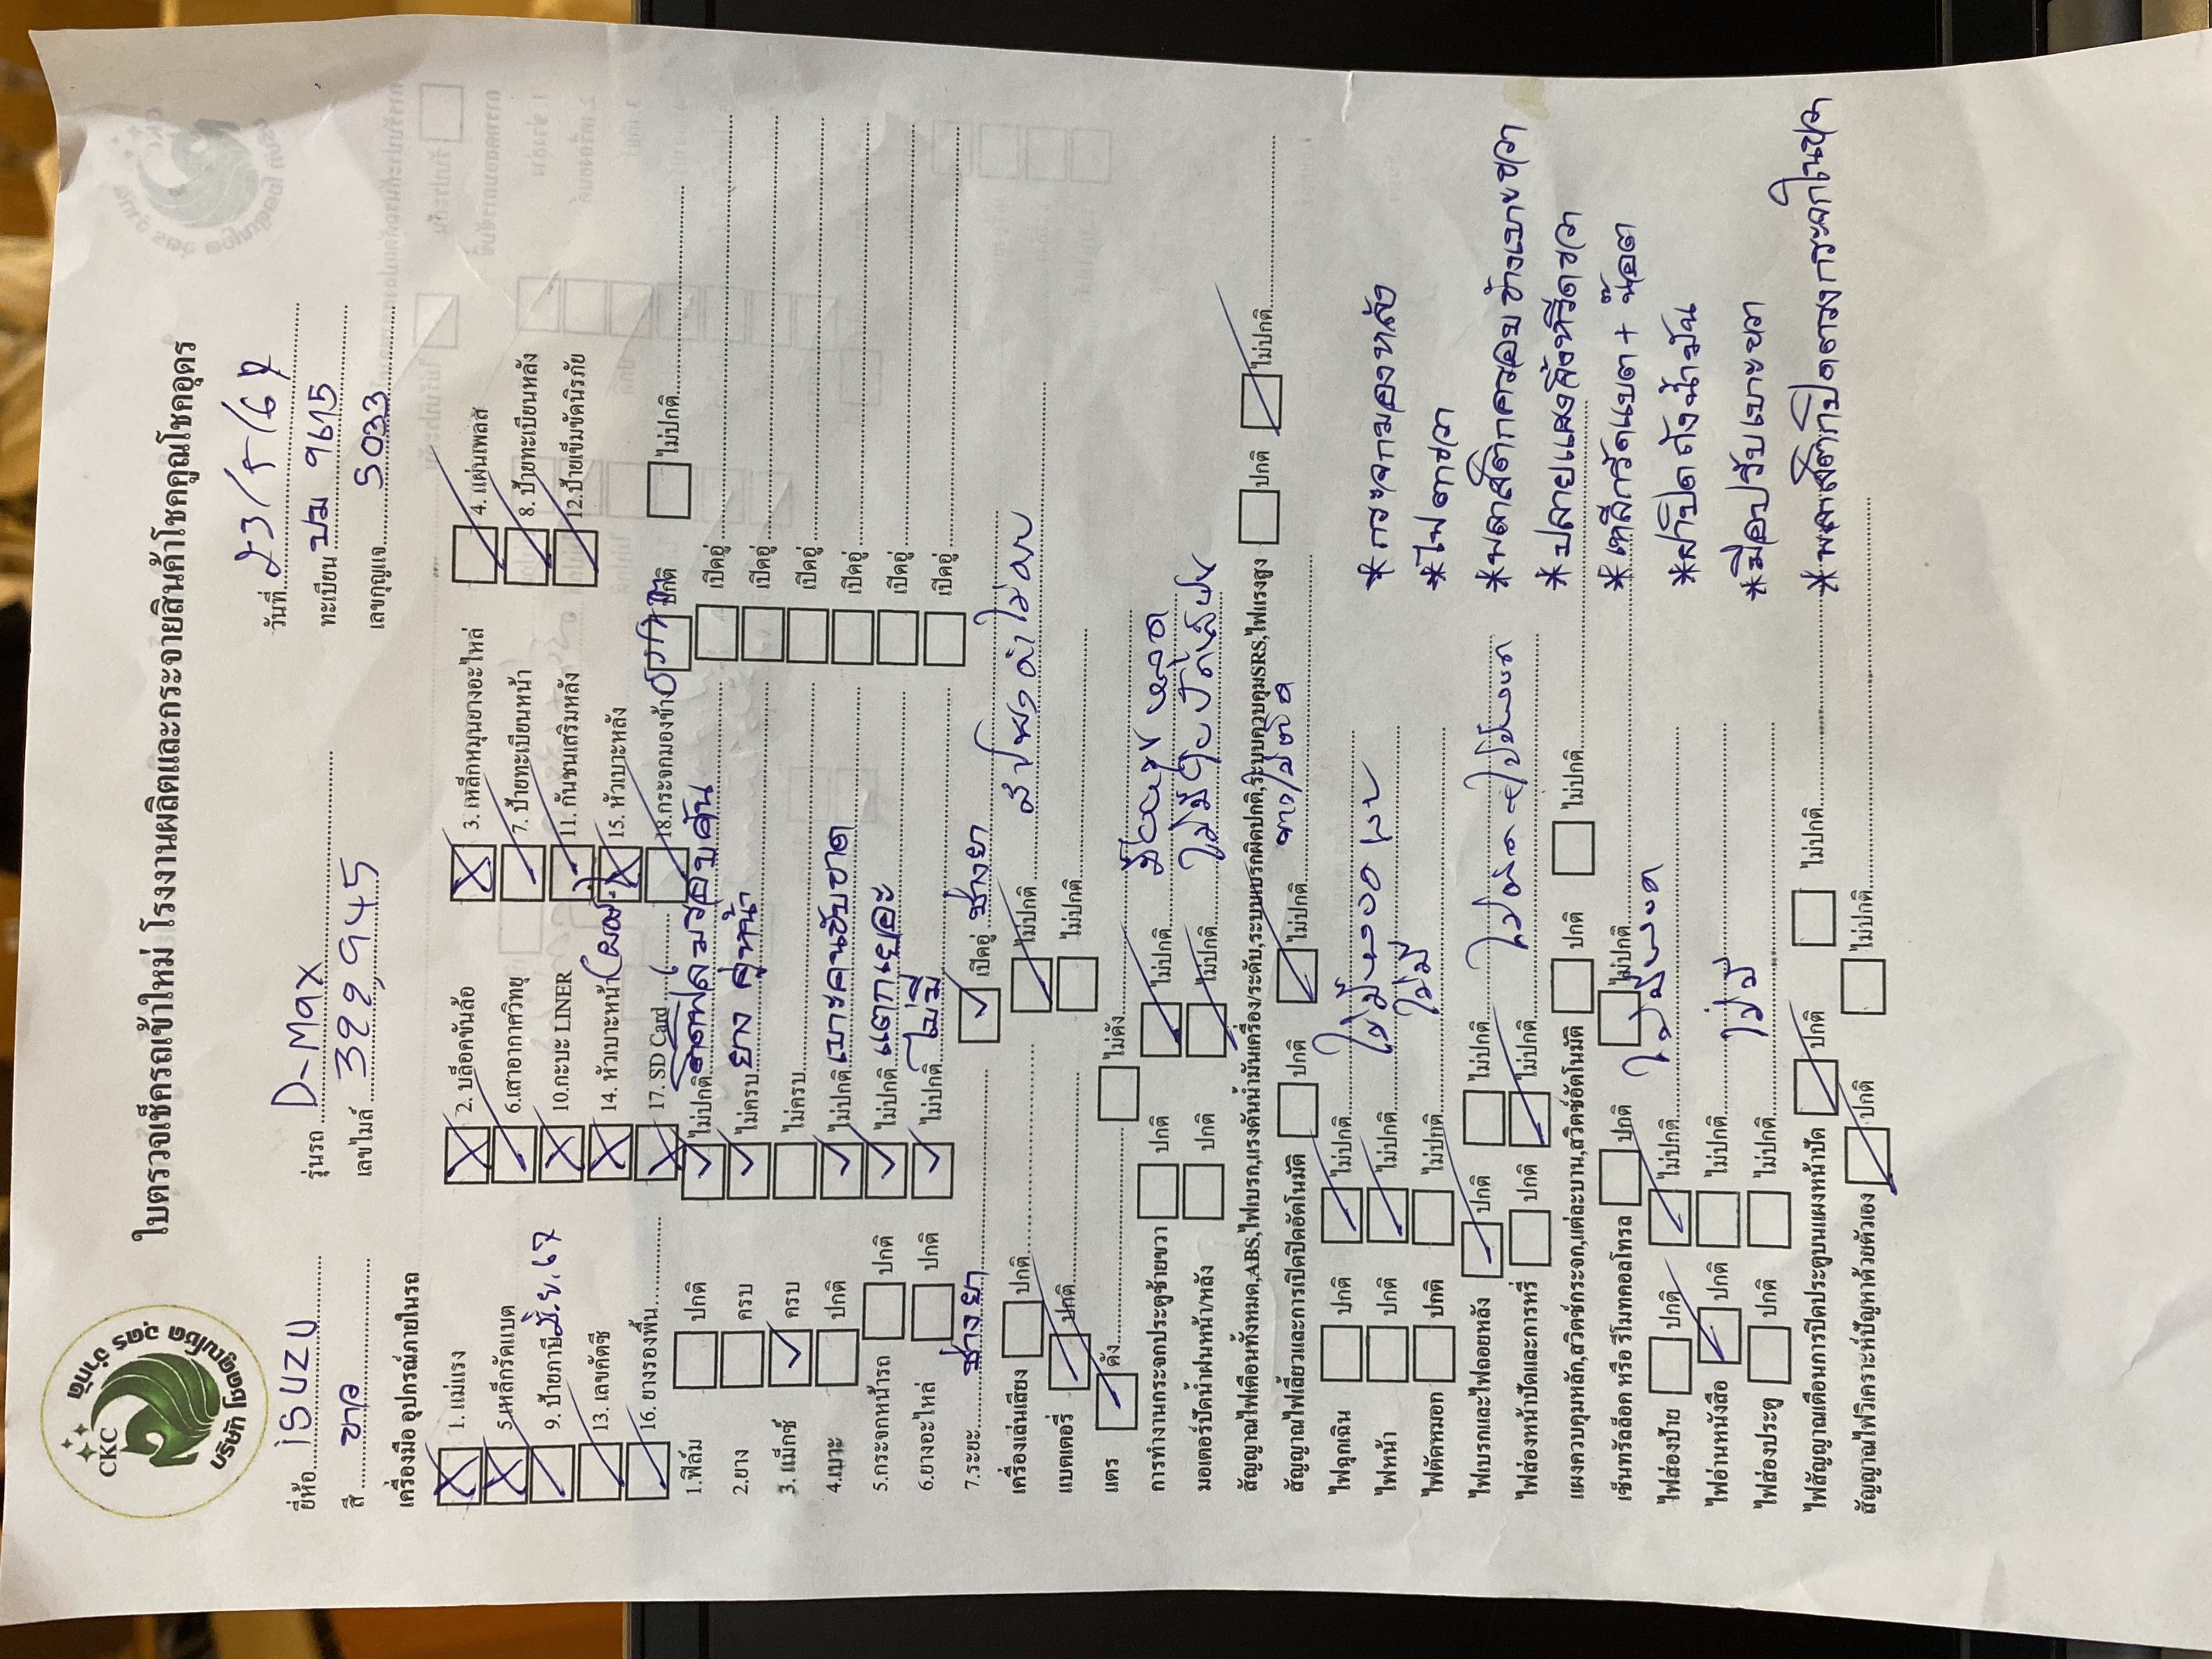 CKC
บริษัท โชคคูณโชค อุดร จำกัด
ใบตรวจเช็ครถเข้าใหม่ โรงงานผลิตและกระจายสินค้าโชคคูณโชคอุดร
วันที่ 23/5/67
ยี่ห้อ ISUZU รุ่นรถ D-Max ทะเบียน 9615
สี ขาว เลขไมล์ 392,945 เลขกุญแจ 5033
เครื่องมือ อุปกรณ์ภายในรถ
1. แม่แรง 2. บล็อคขันล้อ 3. เหล็กหมุนยางอะไหล่ 4. แผ่นเพลส
5.เหล็กรัดแบต 6.เสาอากาศวิทยุ 7. ป้ายทะเบียนหน้า 8. ป้ายทะเบียนหลัง
9. ป้ายภาษี มิ.ย. 67 10.กะบะ LINER 11. กันชนเสริมหลัง 12.ป้ายเข็มขัดนิรภัย
13. เลขคัตซี 14. หัวเบาะหน้า 15. หัวเบาะหลัง
16. ยางรองพื้น 17. SD Card 18.กระจกมองข้าง ปกติ ไม่ปกติ
1.ฟิล์ม ปกติ ไม่ปกติ ติดฟิล์มรอบคัน เปิดอู่
2.ยาง ครบ ไม่ครบ ยาง คู่หน้า เปิดอู่
3. แม็กซ์ ครบ ไม่ครบ เปิดอู่
4.เบาะ ปกติ ไม่ปกติ เบาะคนขับขาด เปิดอู่
5.กระจกหน้ารถ ปกติ ไม่ปกติ แตกเยอะ เปิดอู่
6.ยางอะไหล่ ปกติ ไม่ปกติ ไม่มี เปิดอู่
7.ระยะ ช่างยา เปิดอู่ ช่างยา
เครื่องเล่นเสียง ปกติ ไม่ปกติ
แบตเตอรี่ ปกติ ไม่ปกติ
แตร ดัง ไม่ดัง
การทำงานกระจกประตูซ้ายขวา ปกติ ไม่ปกติ
มอเตอร์ปัดน้ำฝนหน้า/หลัง ปกติ ไม่ปกติ
สัญญาณไฟเตือนทั้งหมด,ABS,ไฟเบรก,แรงดันน้ำมันเครื่อง/ระดับ,ระบบเบรกผิดปกติ,ระบบควบคุมSRS,ไฟแรงสูง ปกติ ไม่ปกติ
สัญญาณไฟเลี้ยวและการเปิดปิดอัตโนมัติ ปกติ ไม่ปกติ
ไฟฉุกเฉิน ปกติ ไม่ปกติ
ไฟหน้า ปกติ ไม่ปกติ ไม่มี
ไฟตัดหมอก ปกติ ไม่ปกติ
ไฟเบรกและไฟถอยหลัง ปกติ ไม่ปกติ
ไฟส่องหน้าปัดและการหรี่ ปกติ ไม่ปกติ
แผงควบคุมหลัก,สวิตช์กระจก,แต่ละบาน,สวิตช์อัตโนมัติ ปกติ ไม่ปกติ
เซ็นทรัลล็อค หรือ รีโมทคอลโทรล ปกติ ไม่ปกติ
ไฟส่องป้าย ปกติ ไม่ปกติ
ไฟอ่านหนังสือ ปกติ ไม่ปกติ ไม่มี
ไฟส่องประตู ปกติ ไม่ปกติ
ไฟสัญญาณเตือนการปิดประตูบนแผงหน้าปัด ปกติ ไม่ปกติ
สัญญาณไฟวิเคราะห์ปัญหาด้วยตัวเอง ปกติ ไม่ปกติ
*กระจกมองหลัง
*ไฟตาขวา
*พลาสติกครอบข้างเบาะขวา
*ปลายแผงจิ้งหรีดขวา
*เหล็กรัดแบต + น๊อต
*ฝาปิดถังน้ำมัน
*มือปรับเบาะขวา
*พลาสติกปิดตรงกระจกในขวา